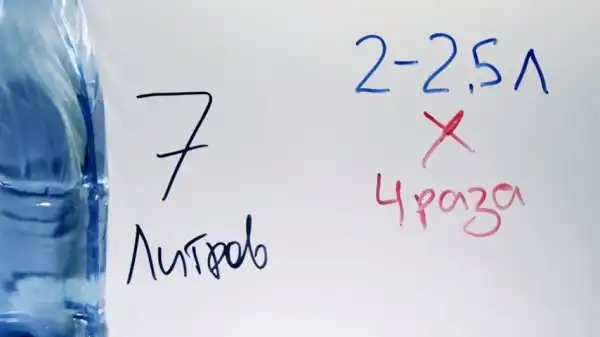 7
литров
2-2,5 л
х
4 раза